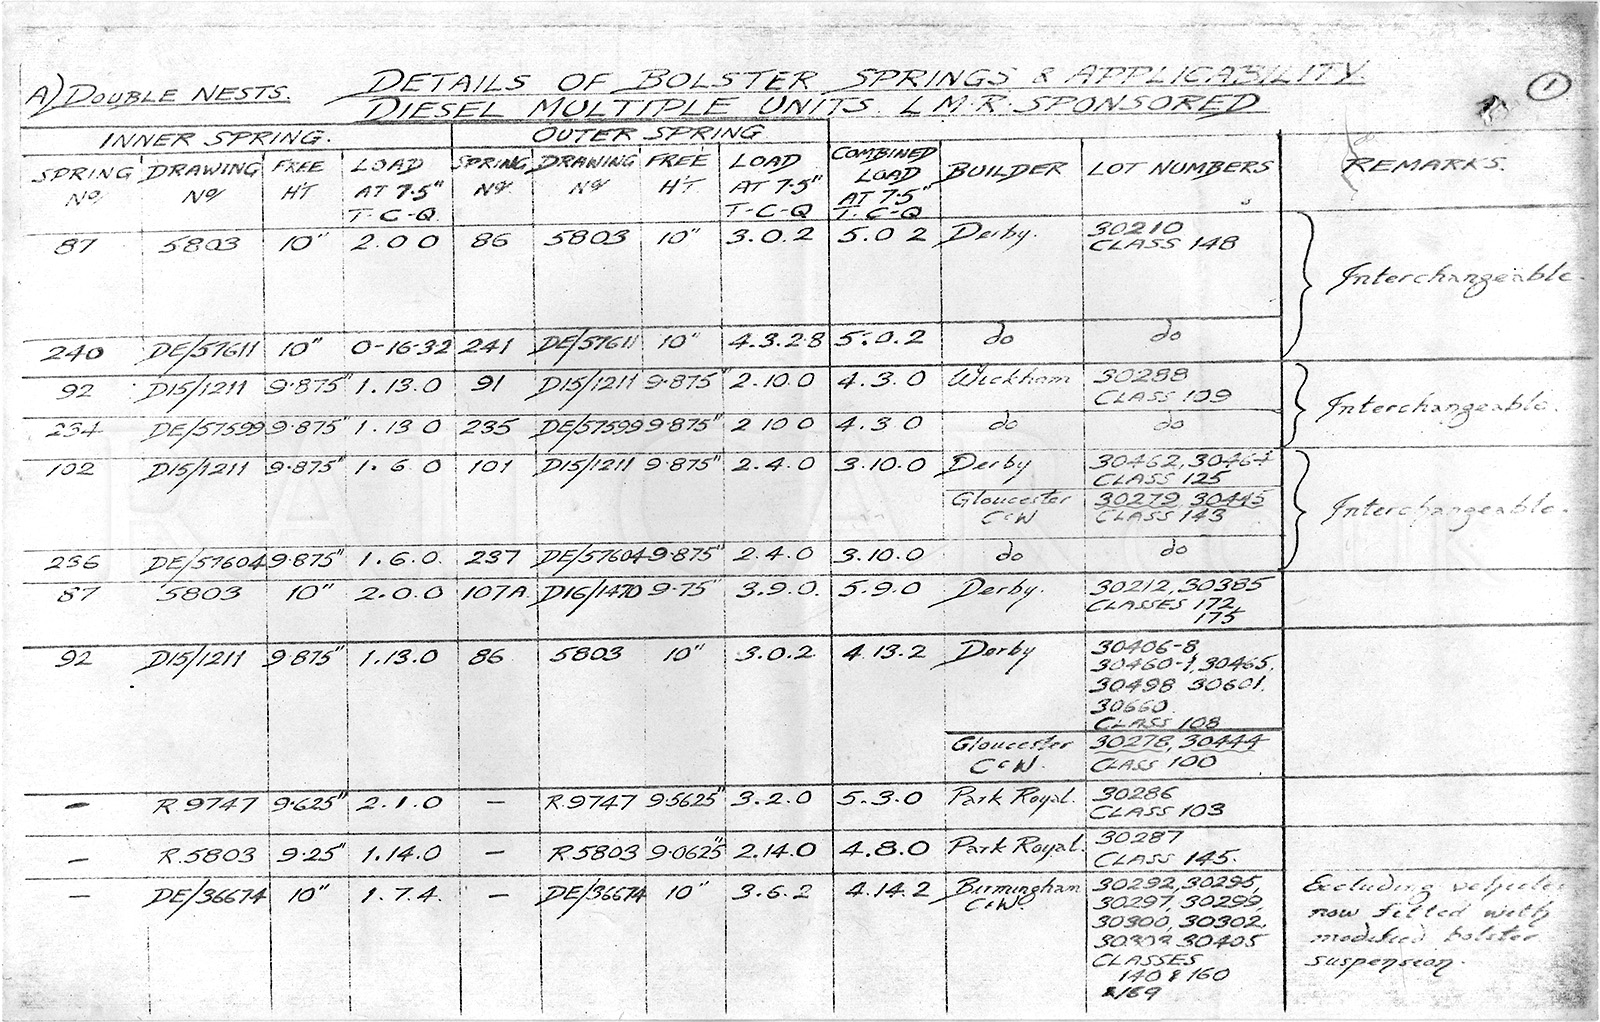 A) DOUBLE NESTS. DETAILS OF BOLSTER SPRINGS & APPLICABILITY.
DIESEL MULTIPLE UNITS. L.M.R. SPONSORED
1
INNER SPRING. OUTER SPRING
SPRING No/ DRAWING No/ FREE HT LOAD AT 7.5" T-C-Q. SPRING No/ DRAWING No/ FREE HT LOAD AT 7.5" T-C-Q COMBINED LOAD AT 7.5" T-C-Q BUILDER LOT NUMBERS REMARKS.
87 5803 10" 2.0 0 86 5803 10" 3.0.2 5.0 2 Derby. 30210
CLASS 148
Interchangeable.
240 DE/57611 10" 0-16-3.2 241 DE/57611 10" 4.3.2.8 5.0.2 do do
92 D15/1211 9.875" 1.13.0 91 D15/1211 9.875" 2.10.0 4.3.0 Wickham 30288
CLASS 109
Interchangeable.
234 DE/57599 9.875" 1.13 0 235 DE/57599 9.875" 2 10 0 4.3 0 do do
102 D15/1211 9.875" 1.6 0 101 D15/1211 9.875" 2.4.0 3.10.0 Derby 30462, 30464
CLASS 125
Gloucester 30279 30445
C&W CLASS 143
Interchangeable.
236 DE/57604 9.875" 1.6.0. 237 DE/57604 9.875" 2.4.0 3.10.0 do do
87 5803 10" 2.0.0 107A D16/1470 9.75" 3.9.0. 5.9.0 Derby. 30212, 30385
CLASSES 172,
175
92 D15/1211 9.875" 1.13.0 86 5803 10" 3.0.2 4.13.2 Derby 30406-8,
30460-1, 30465,
30498 30601.
30660
CLASS 108
Gloucester 30278, 30444
C&W. CLASS 100
- R.9747 9.625" 2.1.0 - R.9747 9.5625" 3.2.0 5.3.0 Park Royal. 30286
CLASS 103
- R.5803 9.25" 1.14.0 - R5803 9.0625" 2.14.0 4.8.0 Park Royal. 30287
CLASS 145.
- DE/36674 10" 1.7.4. - DE/36674 10" 3.6.2 4.14.2 Birmingham 30292, 30295, Excluding vehicles
C&Wo 30297, 30299, now fitted with
30300, 30302, modified bolster
30303 30405 suspension.
CLASSES
140 & 160
& 169